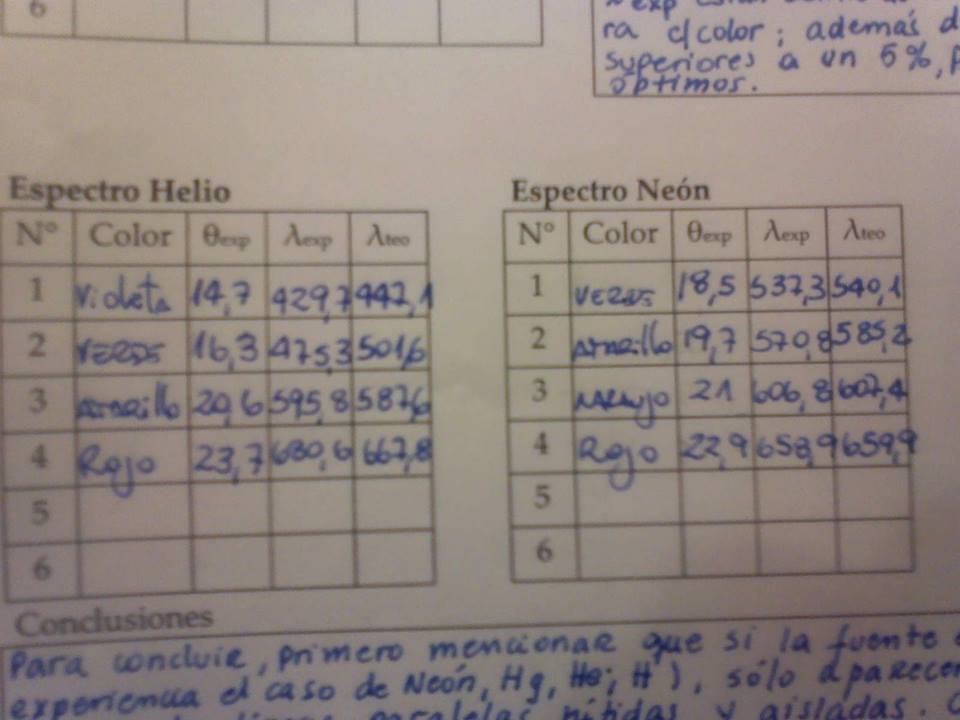 6
exp
ra c/color; además d
superiores a un 5%, p
óptimos.
Espectro Helio
N° Color θexp λexp λteo
1 Violeta 14,7 429,7 447,1
2 VERDE 16,3 475,3 501,6
3 Amarillo 20,6 595,8 587,6
4 Rojo 23,7 680,6 667,8
5
6
Espectro Neón
N° Color θexp λexp λteo
1 VERDE 18,5 537,3 540,1
2 Amarillo 19,7 570,8 585,2
3 naranjo 21 606,8 607,4
4 Rojo 22,9 658,9 659,9
5
6
Conclusiones
Para concluir, primero mencionar que si la fuente
experiencia el caso de Neón, Hg, He; H), sólo aparecen
paralelas nítidas y aisladas.